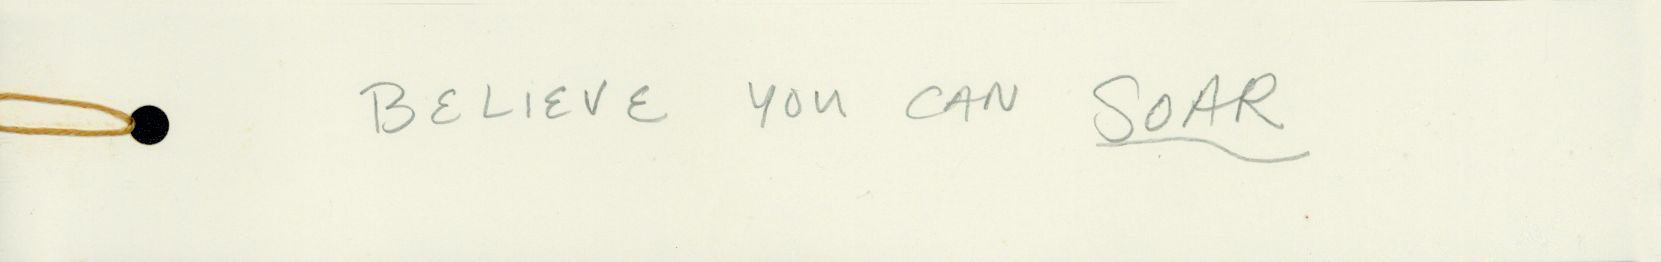 BELIEVE YOU CAN SOAR